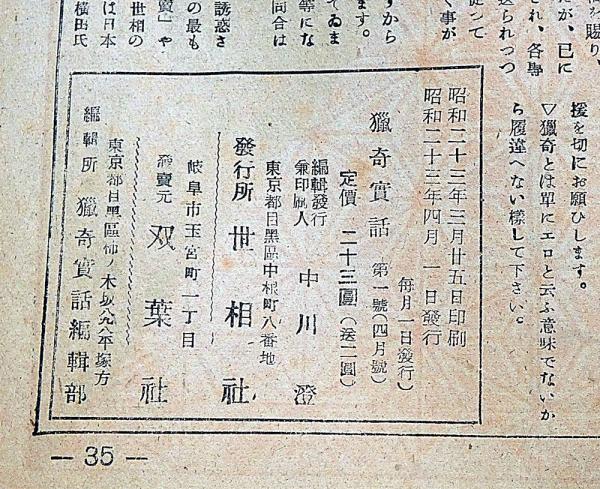 援を切にお願ひします。
▽獵奇とは單にエロと云ふ意味でないか
ら履違へない樣して下さい。
を賜り、
だが、已に
され、各專
送られつつ
從つて
く事が
すから
ます。
てゐま
等にな
問合は
誘惑さ
の最も
賣」や
世相の
は日本
横田氏
昭和二十三年三月廿五日印刷
昭和二十三年四月一日發行
每月一日發行)
獵奇實話 第一號(四月號)
定價 二十三圓(送二圓)
編輯發行
兼印刷人 中川澄
東京都目黑區中根町八番地
發行所 世相社
岐阜市玉宮町一丁目
發賣元 双葉社
東京都目黑區柿ノ木坂九八平塚方
編輯所 獵奇實話編輯部
― 35 ―